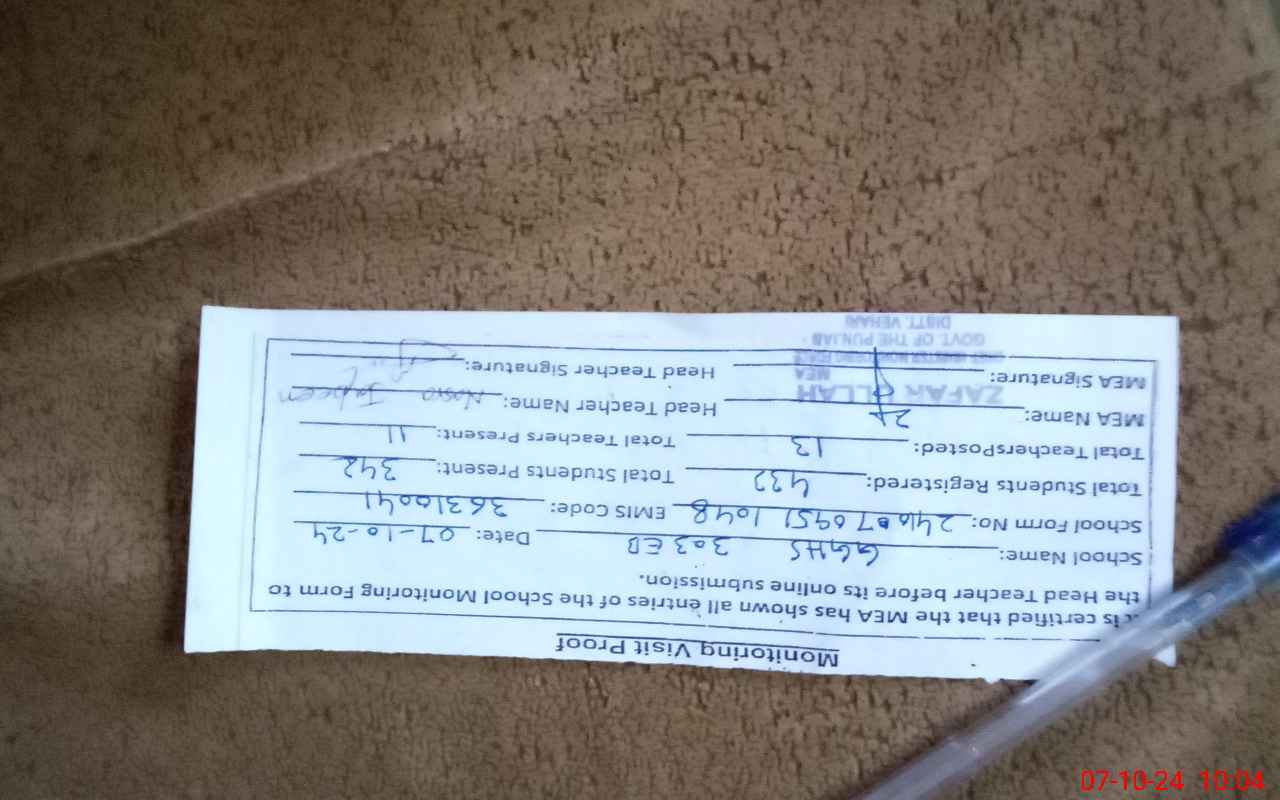 Monitoring Visit Proof
It is certified that the MEA has shown all entries of the School Monitoring Form to
the Head Teacher before its online submission.
School Name: GGHS 303 EB Date: 07-10-24
School Form No: EMIS Code: 36310041
Total Students Registered: 433 Total Students Present: 342
Total TeachersPosted: 13 Total Teachers Present: 11
MEA Name: Head Teacher Name:
MEA Signature: Head Teacher Signature:
ZAFAR ULLAH
MEA
CHIEF MINISTER MONITORING FORCE
GOVT. OF THE PUNJAB
DISTT. VEHARI
07-10-24 10:04